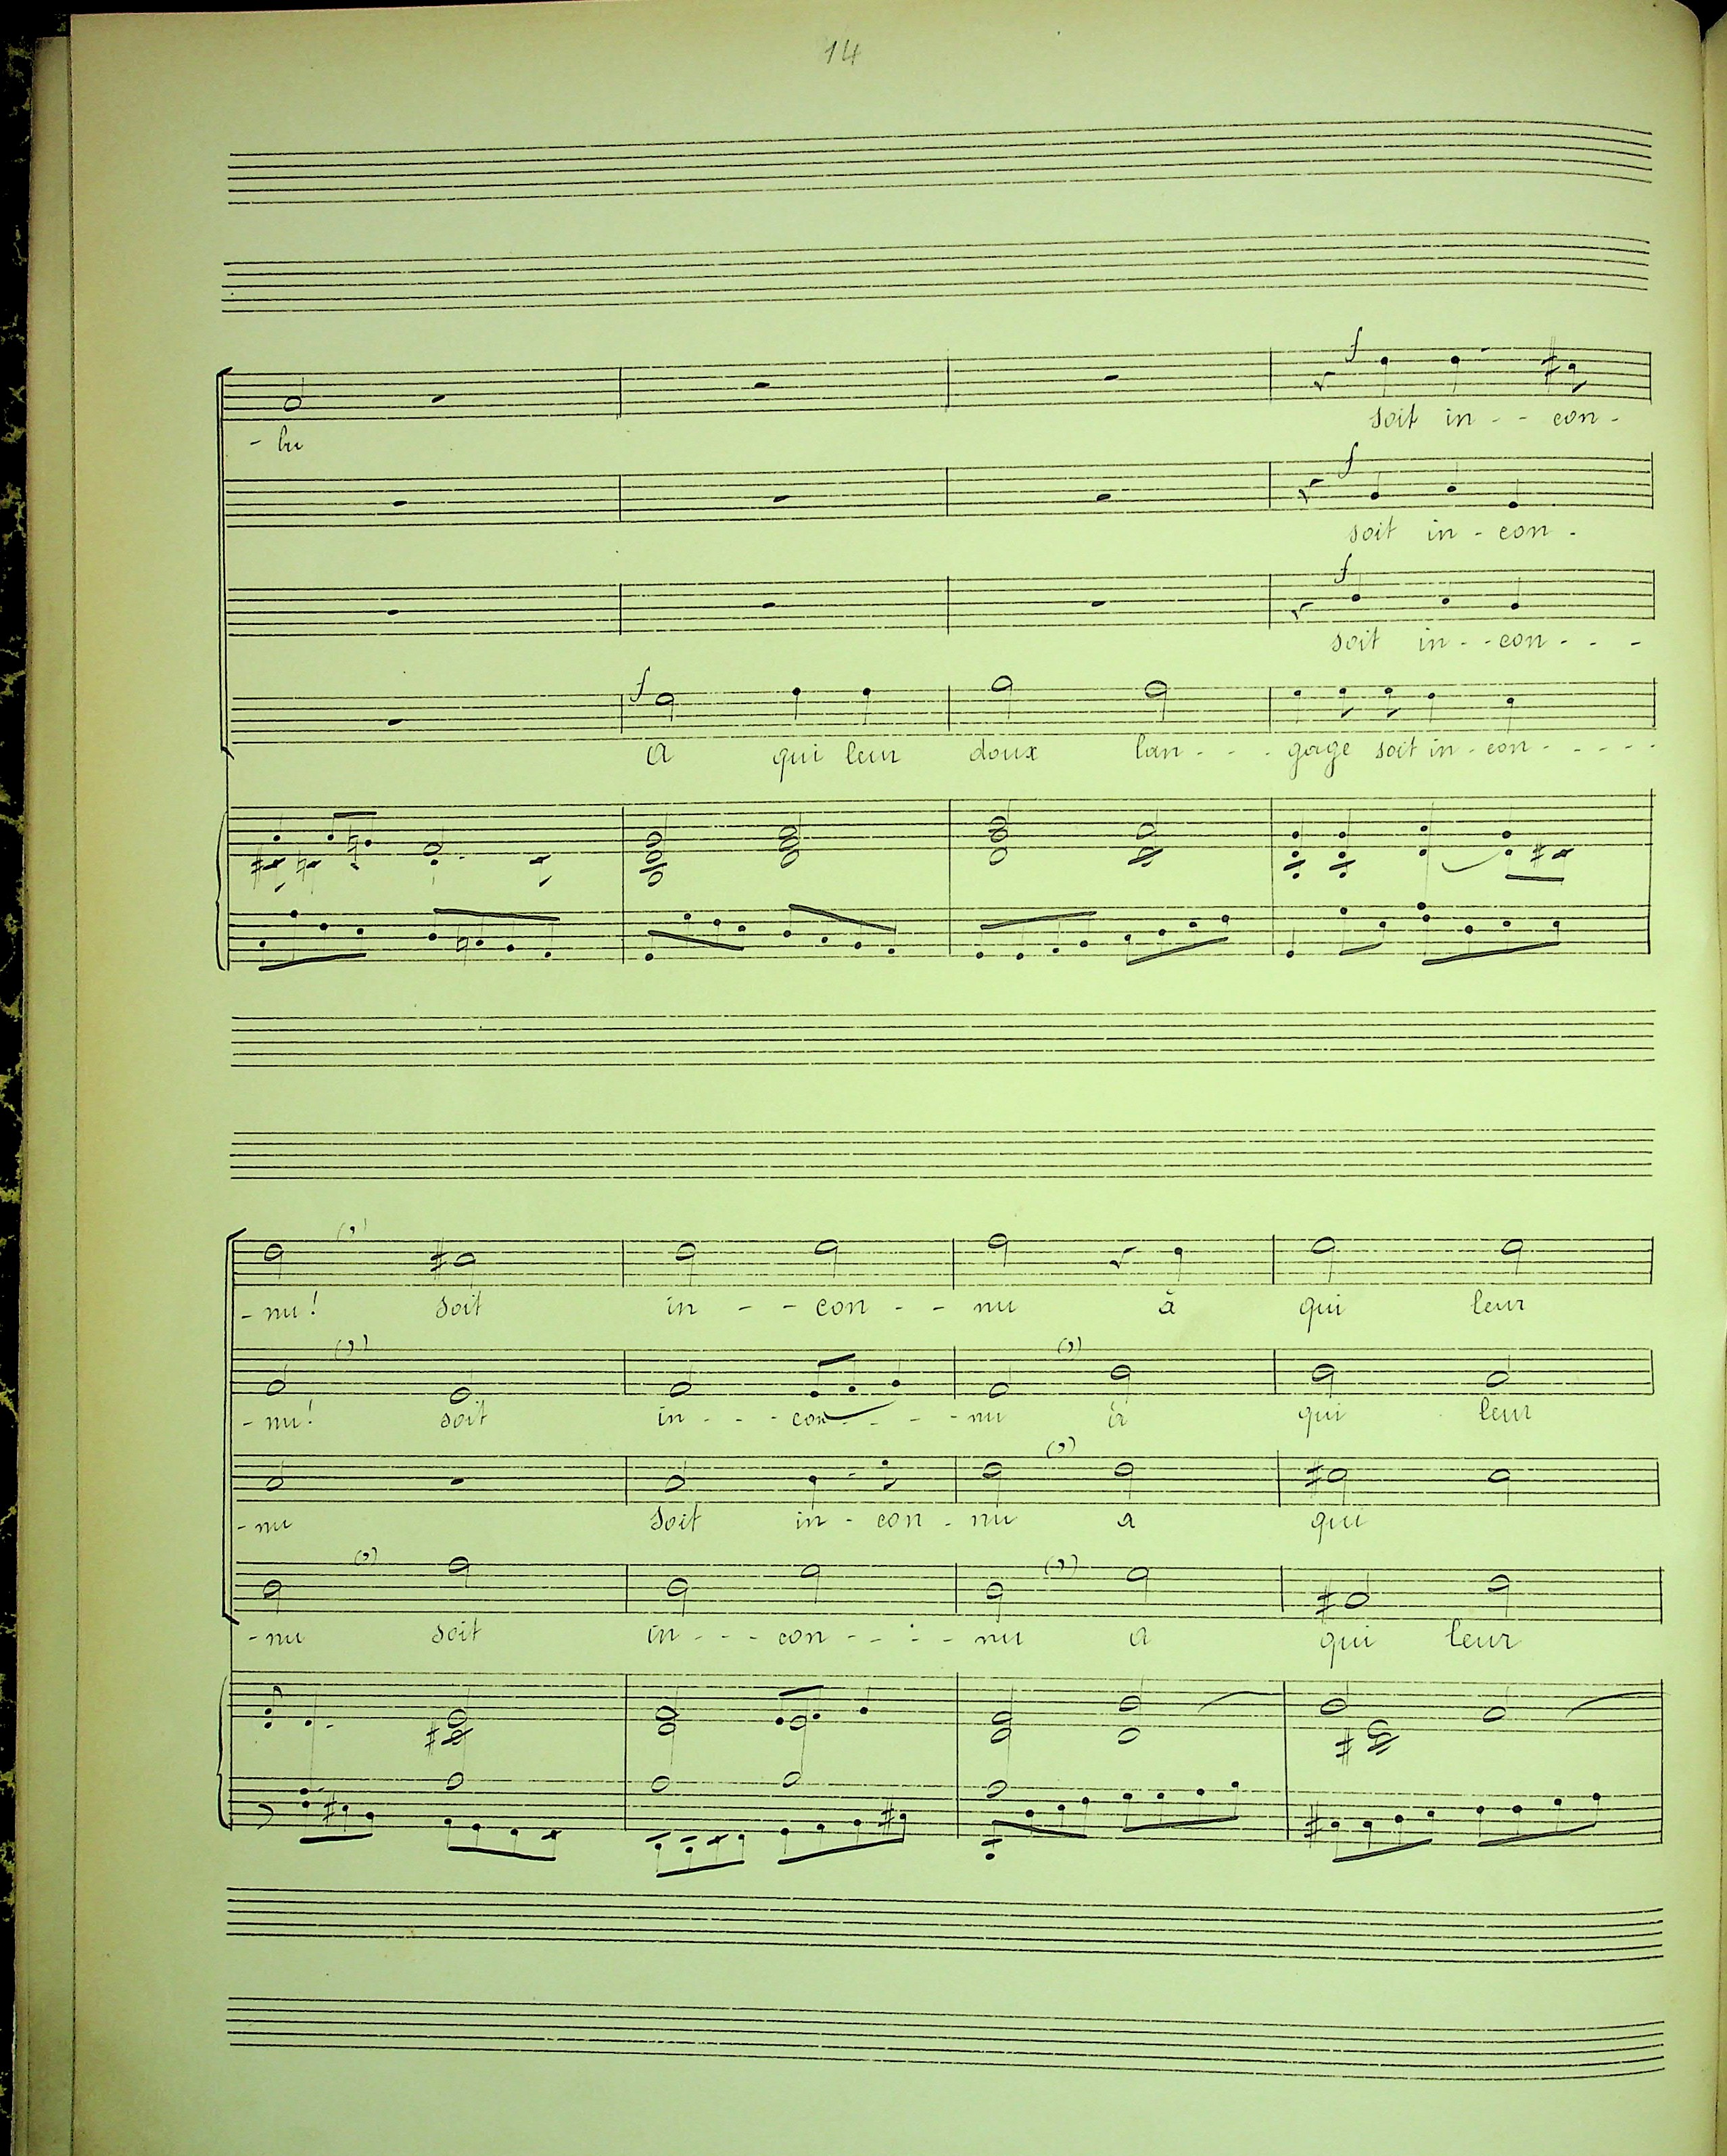 14
f
soit in - - con -
- lu
f
soit in - con -
f
soit in - - con - - -
f
a qui leur doux lan - - - gage soit in - con - - - - -
- nu ! soit in - - con - - nu à qui leur
- nu ! soit in - - - con - - - - nu à qui leur
- nu soit in - con - nu a qui
- nu soit in - - - con - - - - nu a qui leur